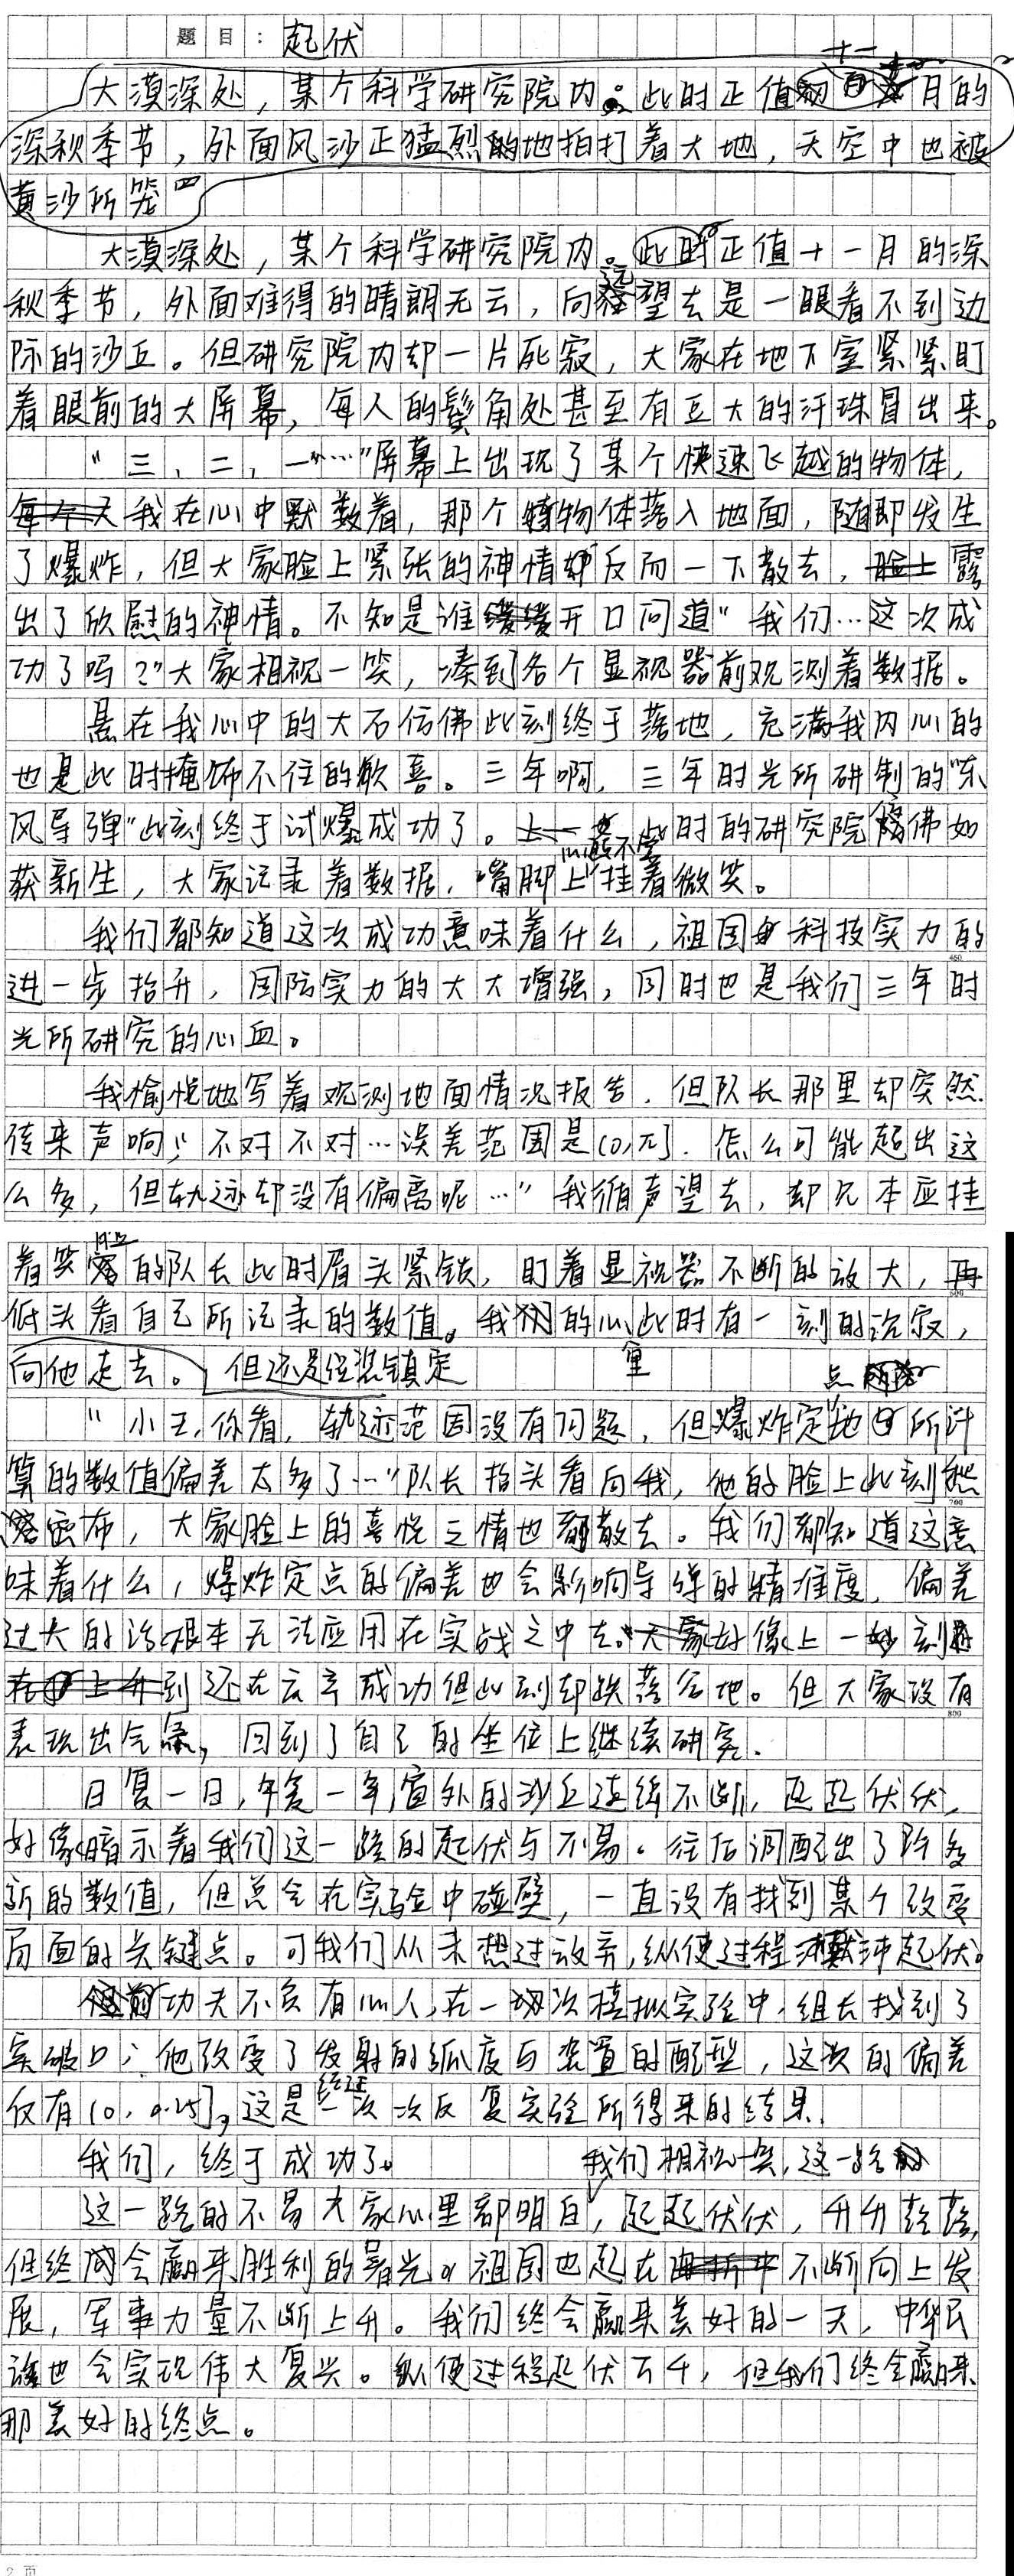 题目：起伏
大漠深处，某个科学研究院内。此时正值十一月的
深秋季节，外面风沙正猛烈的地拍打着大地，天空中也被
黄沙所笼四
大漠深处，某个科学研究院内。此时正值十一月的深
秋季节，外面难得的晴朗无云，向远望去是一眼看不到边
际的沙丘。但研究院内却一片死寂，大家在地下室紧紧盯
着眼前的大屏幕，每人的鬓角处甚至有豆大的汗珠冒出来。
“三、二、一……”屏幕上出现了某个快速飞越的物体，
我在心中默数着，那个物体落入地面，随即发生
了爆炸，但大家脸上紧张的神情反而一下散去，露
出了欣慰的神情。不知是谁缓缓开口问道“我们…这次成
功了吗？”大家相视一笑，凑到各个显视器前观测着数据。
悬在我心中的大石仿佛此刻终于落地，充满我内心的
也是此时掩饰不住的欣喜。三年啊，三年时光所研制的“东
风导弹”此刻终于试爆成功了。此时的研究院仿佛如
获新生，大家记录着数据，嘴脚上挂着微笑。
我们都知道这次成功意味着什么，祖国科技实力的
进一步抬升，国防实力的大大增强，同时也是我们三年时
光所研究的心血。
我愉悦地写着观测地面情况报告，但队长那里却突然
传来声响；“不对不对…误差范围是(0,π]．怎么可能超出这
么多，但轨迹却没有偏离呢…”我循声望去，却见本应挂
着笑的队长此时眉头紧锁，盯着显视器不断的放大，再
低头看自己所记录的数值。我的心此时有一刻的沉寂，
向他走去。但还是强装镇定
“小王，你看，轨迹范围没有问题，但爆炸定点所计
算的数值偏差太多了…”队长抬头看向我，他的脸上此刻愁
密布，大家脸上的喜悦之情也都散去。我们都知道这意
味着什么，爆炸定点的偏差也会影响导弹的精准度，偏差
过大的话根本无法应用在实战之中去。大家好像上一刻
到还在云端成功但此刻却跌落谷地。但大家没有
表现出气馁，回到了自己的坐位上继续研究．
日复一日，年复一年，窗外的沙丘连绵不断，起起伏伏，
好像暗示着我们这一路的起伏与不易。往后调配出了许多
新的数值，但总会在实验中碰壁，一直没有找到某个改变
局面的关键点。可我们从未想过放弃，纵使过程起伏。
功夫不负有心人，在一次模拟实验中，组长找到了
突破口；他改变了发射的弧度与装置的配型，这次的偏差
仅有(0，0.25]，这是经过一次次反复实验所得来的结果．
我们，终于成功了。
我们相视一笑，这一路
这一路的不易大家心里都明白，起起伏伏，升升落落，
但终会赢来胜利的曙光。祖国也起在不断向上发
展，军事力量不断上升。我们终会赢来美好的一天，中华民
族也会实现伟大复兴。纵使过程起伏万千，但我们终会赢来
那美好的终点。
2 页